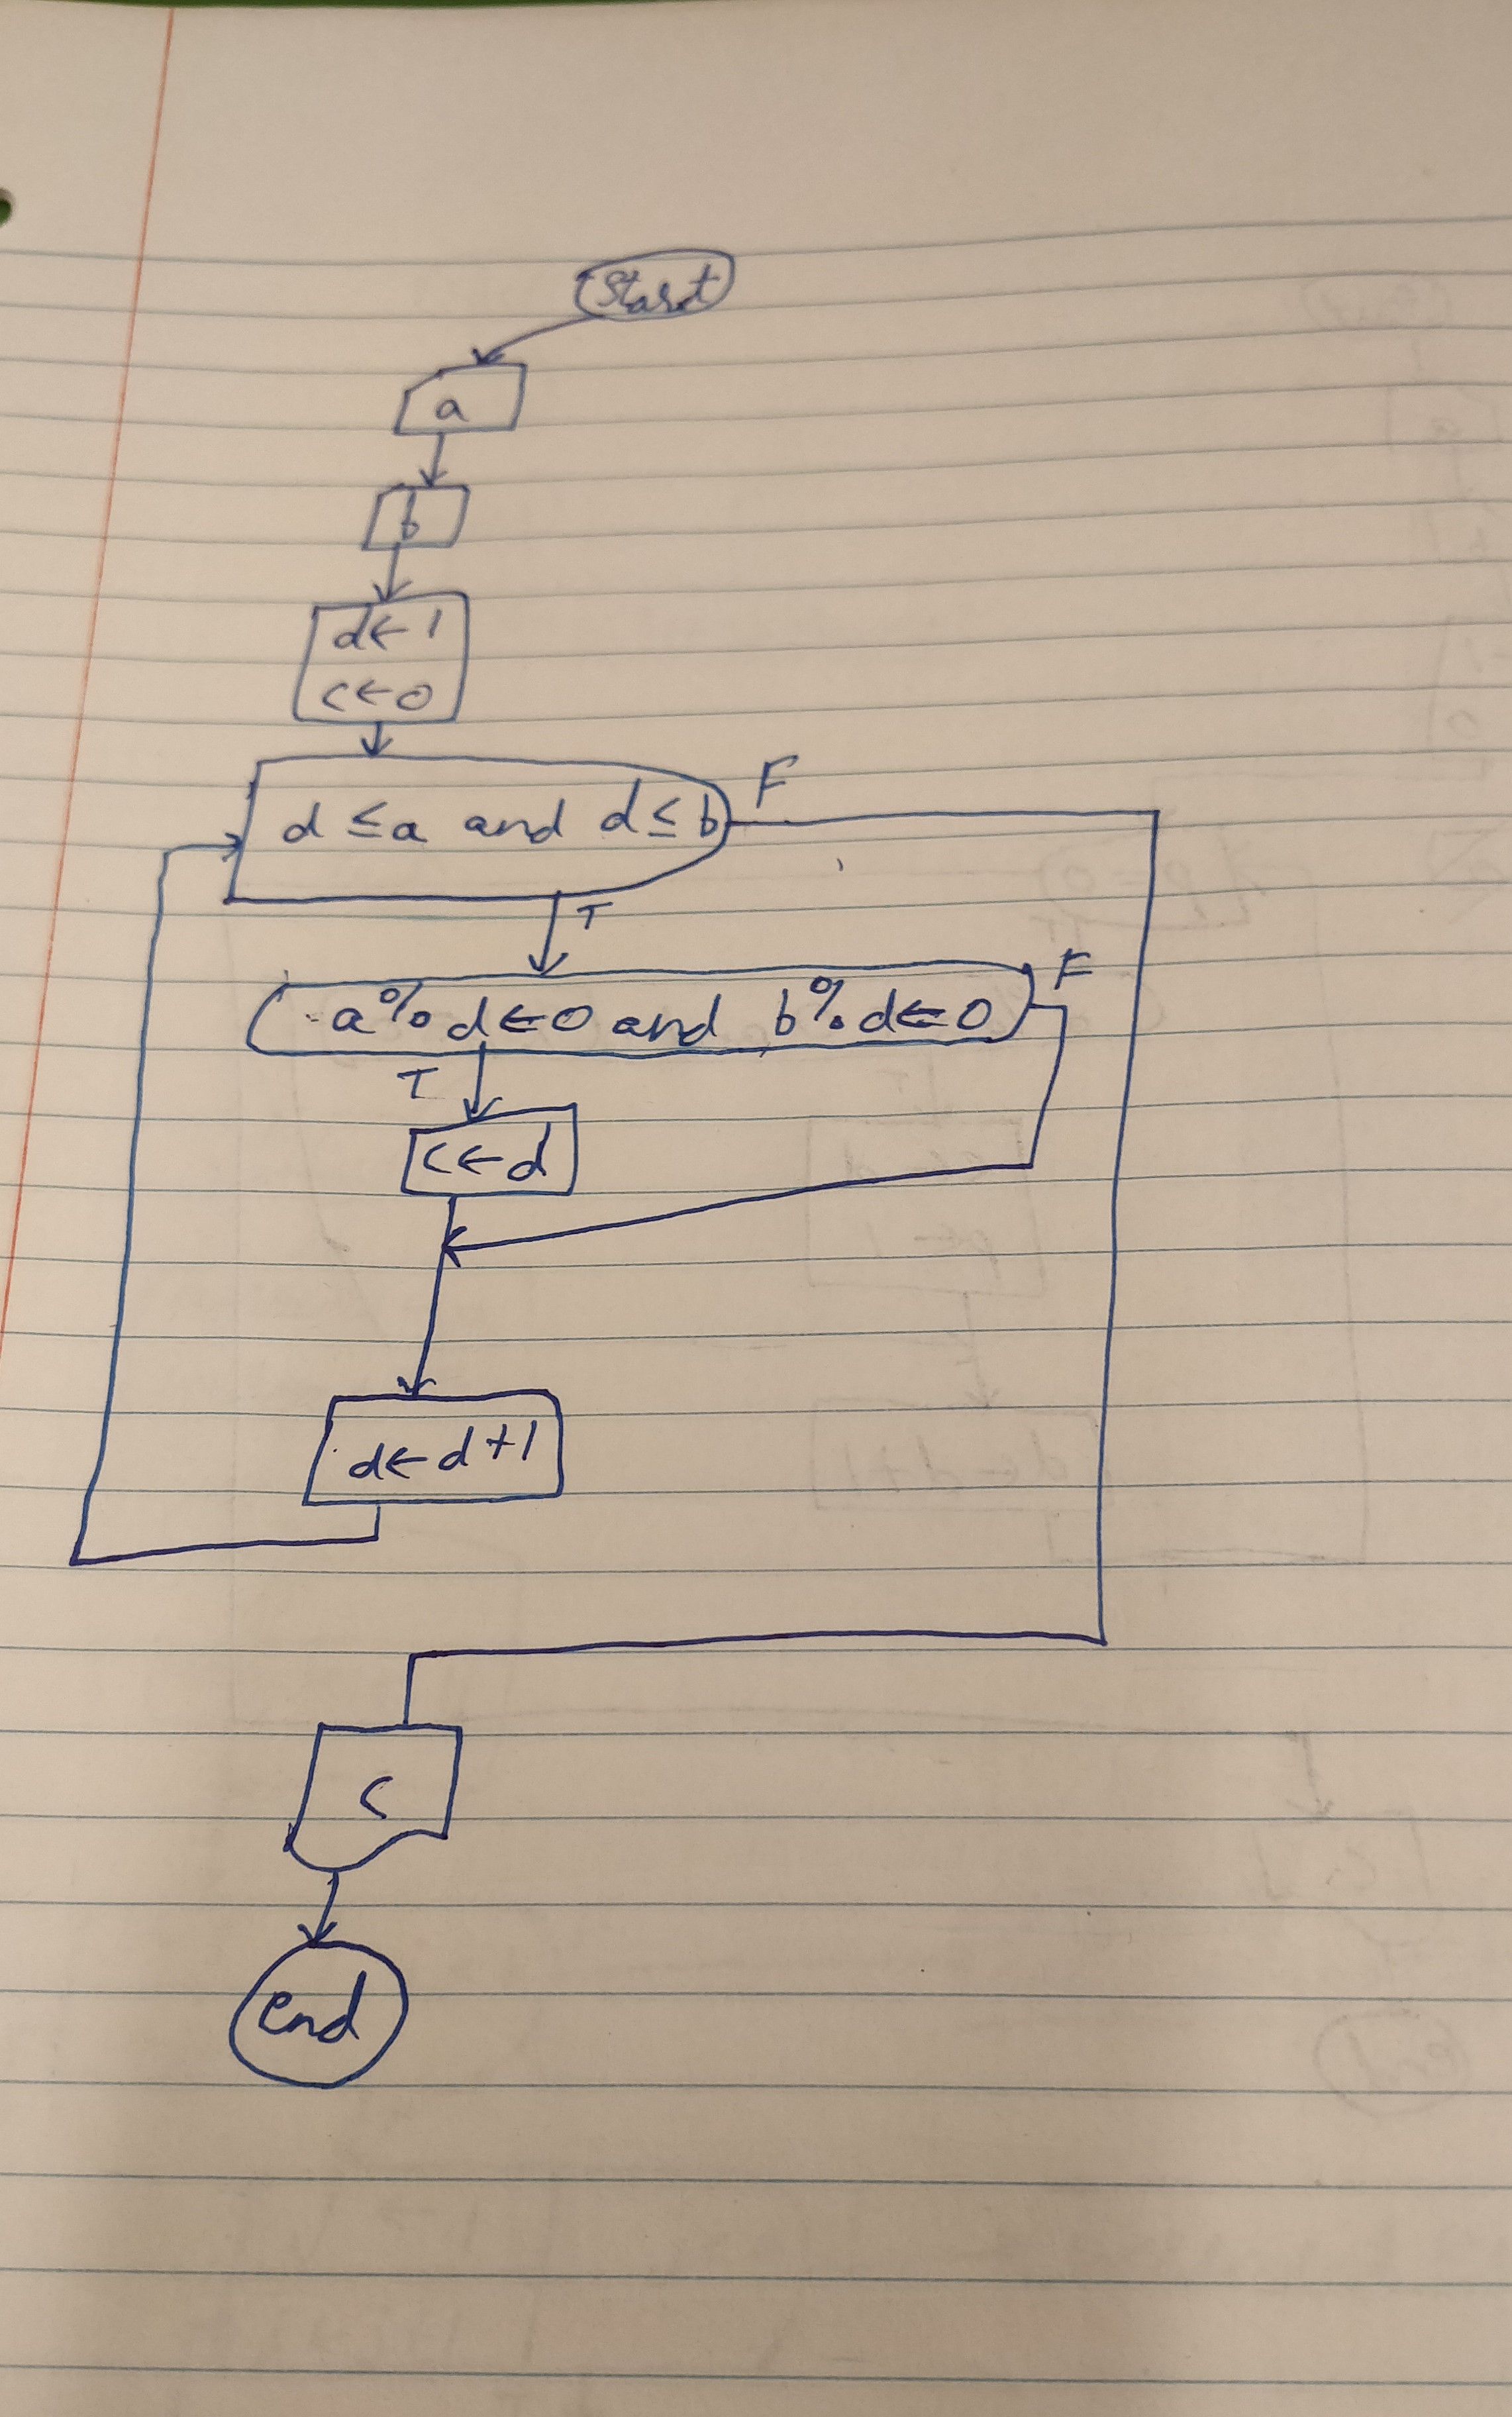 Start
a
b
d←1
c←0
d ≤a and d≤b
F
T
a%d←0 and b%d←0
F
T
c←d
d←d+1
c
end